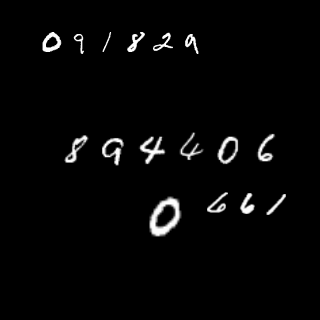 091829
894406
0661